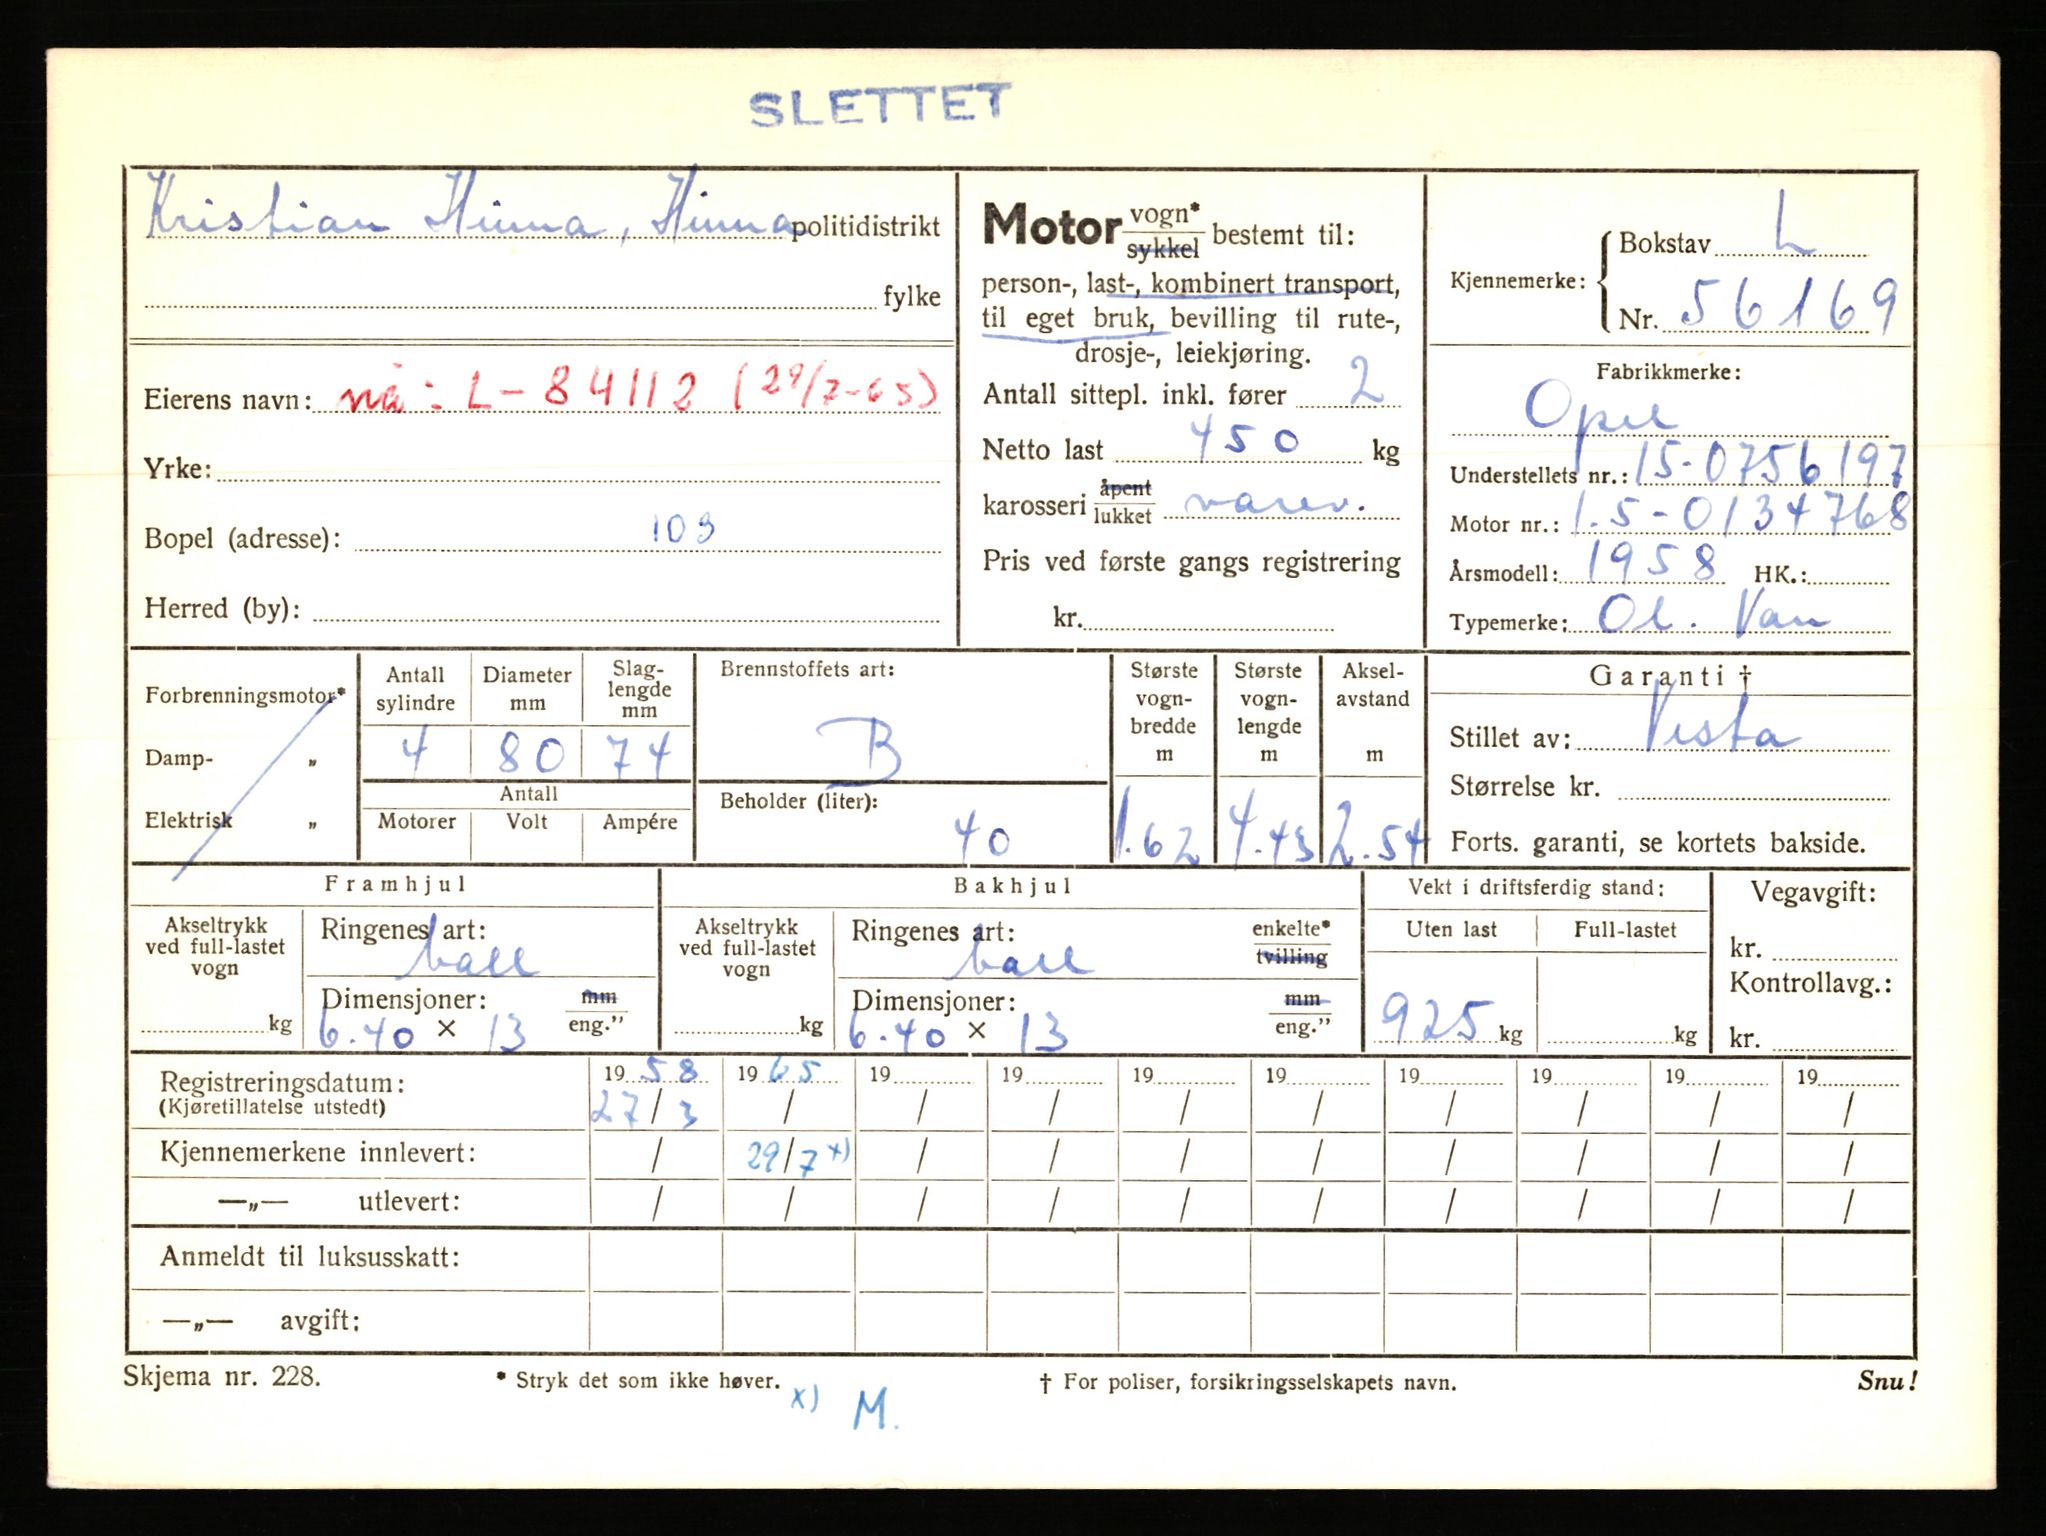 SLETTET
Kristian Hinna, Hinna politidistrikt
fylke
Eierens navn: nå: L-84112 (29/7-65)
Yrke:
Bopel (adresse): 103
Herred (by):
Motor vogn* sykkel bestemt til:
person-, last-, kombinert transport,
til eget bruk, bevilling til rute-,
drosje-, leiekjøring.
Antall sittepl. inkl. fører 2
Netto last 450 kg
karosseri åpent lukket varev.
Pris ved første gangs registrering
kr.
Kjennemerke: Bokstav L
Nr. 56169
Fabrikkmerke:
Opel
Understellets nr.: 15-0756197
Motor nr.: 1.5-0134768
Årsmodell: 1958 HK.:
Typemerke: Ol. Van
Forbrenningsmotor*
Damp- „
Elektrisk „
Antall sylindre Diameter mm Slag-lengde mm
4 80 74
Antall
Motorer Volt Ampére
Brennstoffets art:
B
Beholder (liter):
40
Største vogn-bredde m
1.62
Største vogn-lengde m
4.43
Aksel-avstand m
2.54
Garanti †
Stillet av: Vesta
Størrelse kr.
Forts. garanti, se kortets bakside.
Framhjul
Akseltrykk ved full-lastet vogn
kg
Ringenes art:
ball
Dimensjoner: mm eng.”
6.40 × 13
Bakhjul
Akseltrykk ved full-lastet vogn
kg
Ringenes art: enkelte* tvilling
ball
Dimensjoner: mm eng.”
6.40 × 13
Vekt i driftsferdig stand:
Uten last Full-lastet
925 kg kg
Vegavgift:
kr.
Kontrollavg.:
kr.
Registreringsdatum: 1958 1965 19 19 19 19 19 19 19 19
(Kjøretillatelse utstedt) 27/3 / / / / / / / / /
Kjennemerkene innlevert: / 29/7 x) / / / / / / / /
—„— utlevert: / / / / / / / / / /
Anmeldt til luksusskatt:
—„— avgift:
Skjema nr. 228. * Stryk det som ikke høver. † For poliser, forsikringsselskapets navn. Snu!
x) M.